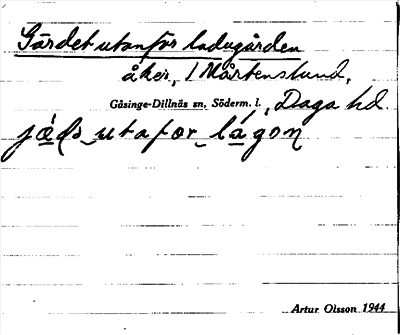 Gärdet utanför ladugården
åker, 1 Mårtenslund,
Gåsinge-Dillnäs sn, Söderm. l., Daga hd.
jǽḍs utafor lágon
Artur Olsson 1944